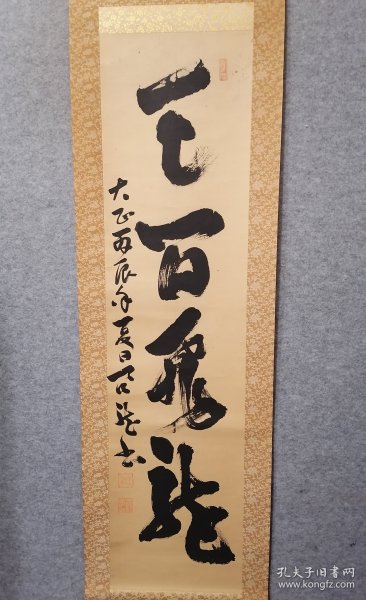 百飛龍
大正丙辰年夏日龍書
孔夫子旧书网
www.kongfz.com